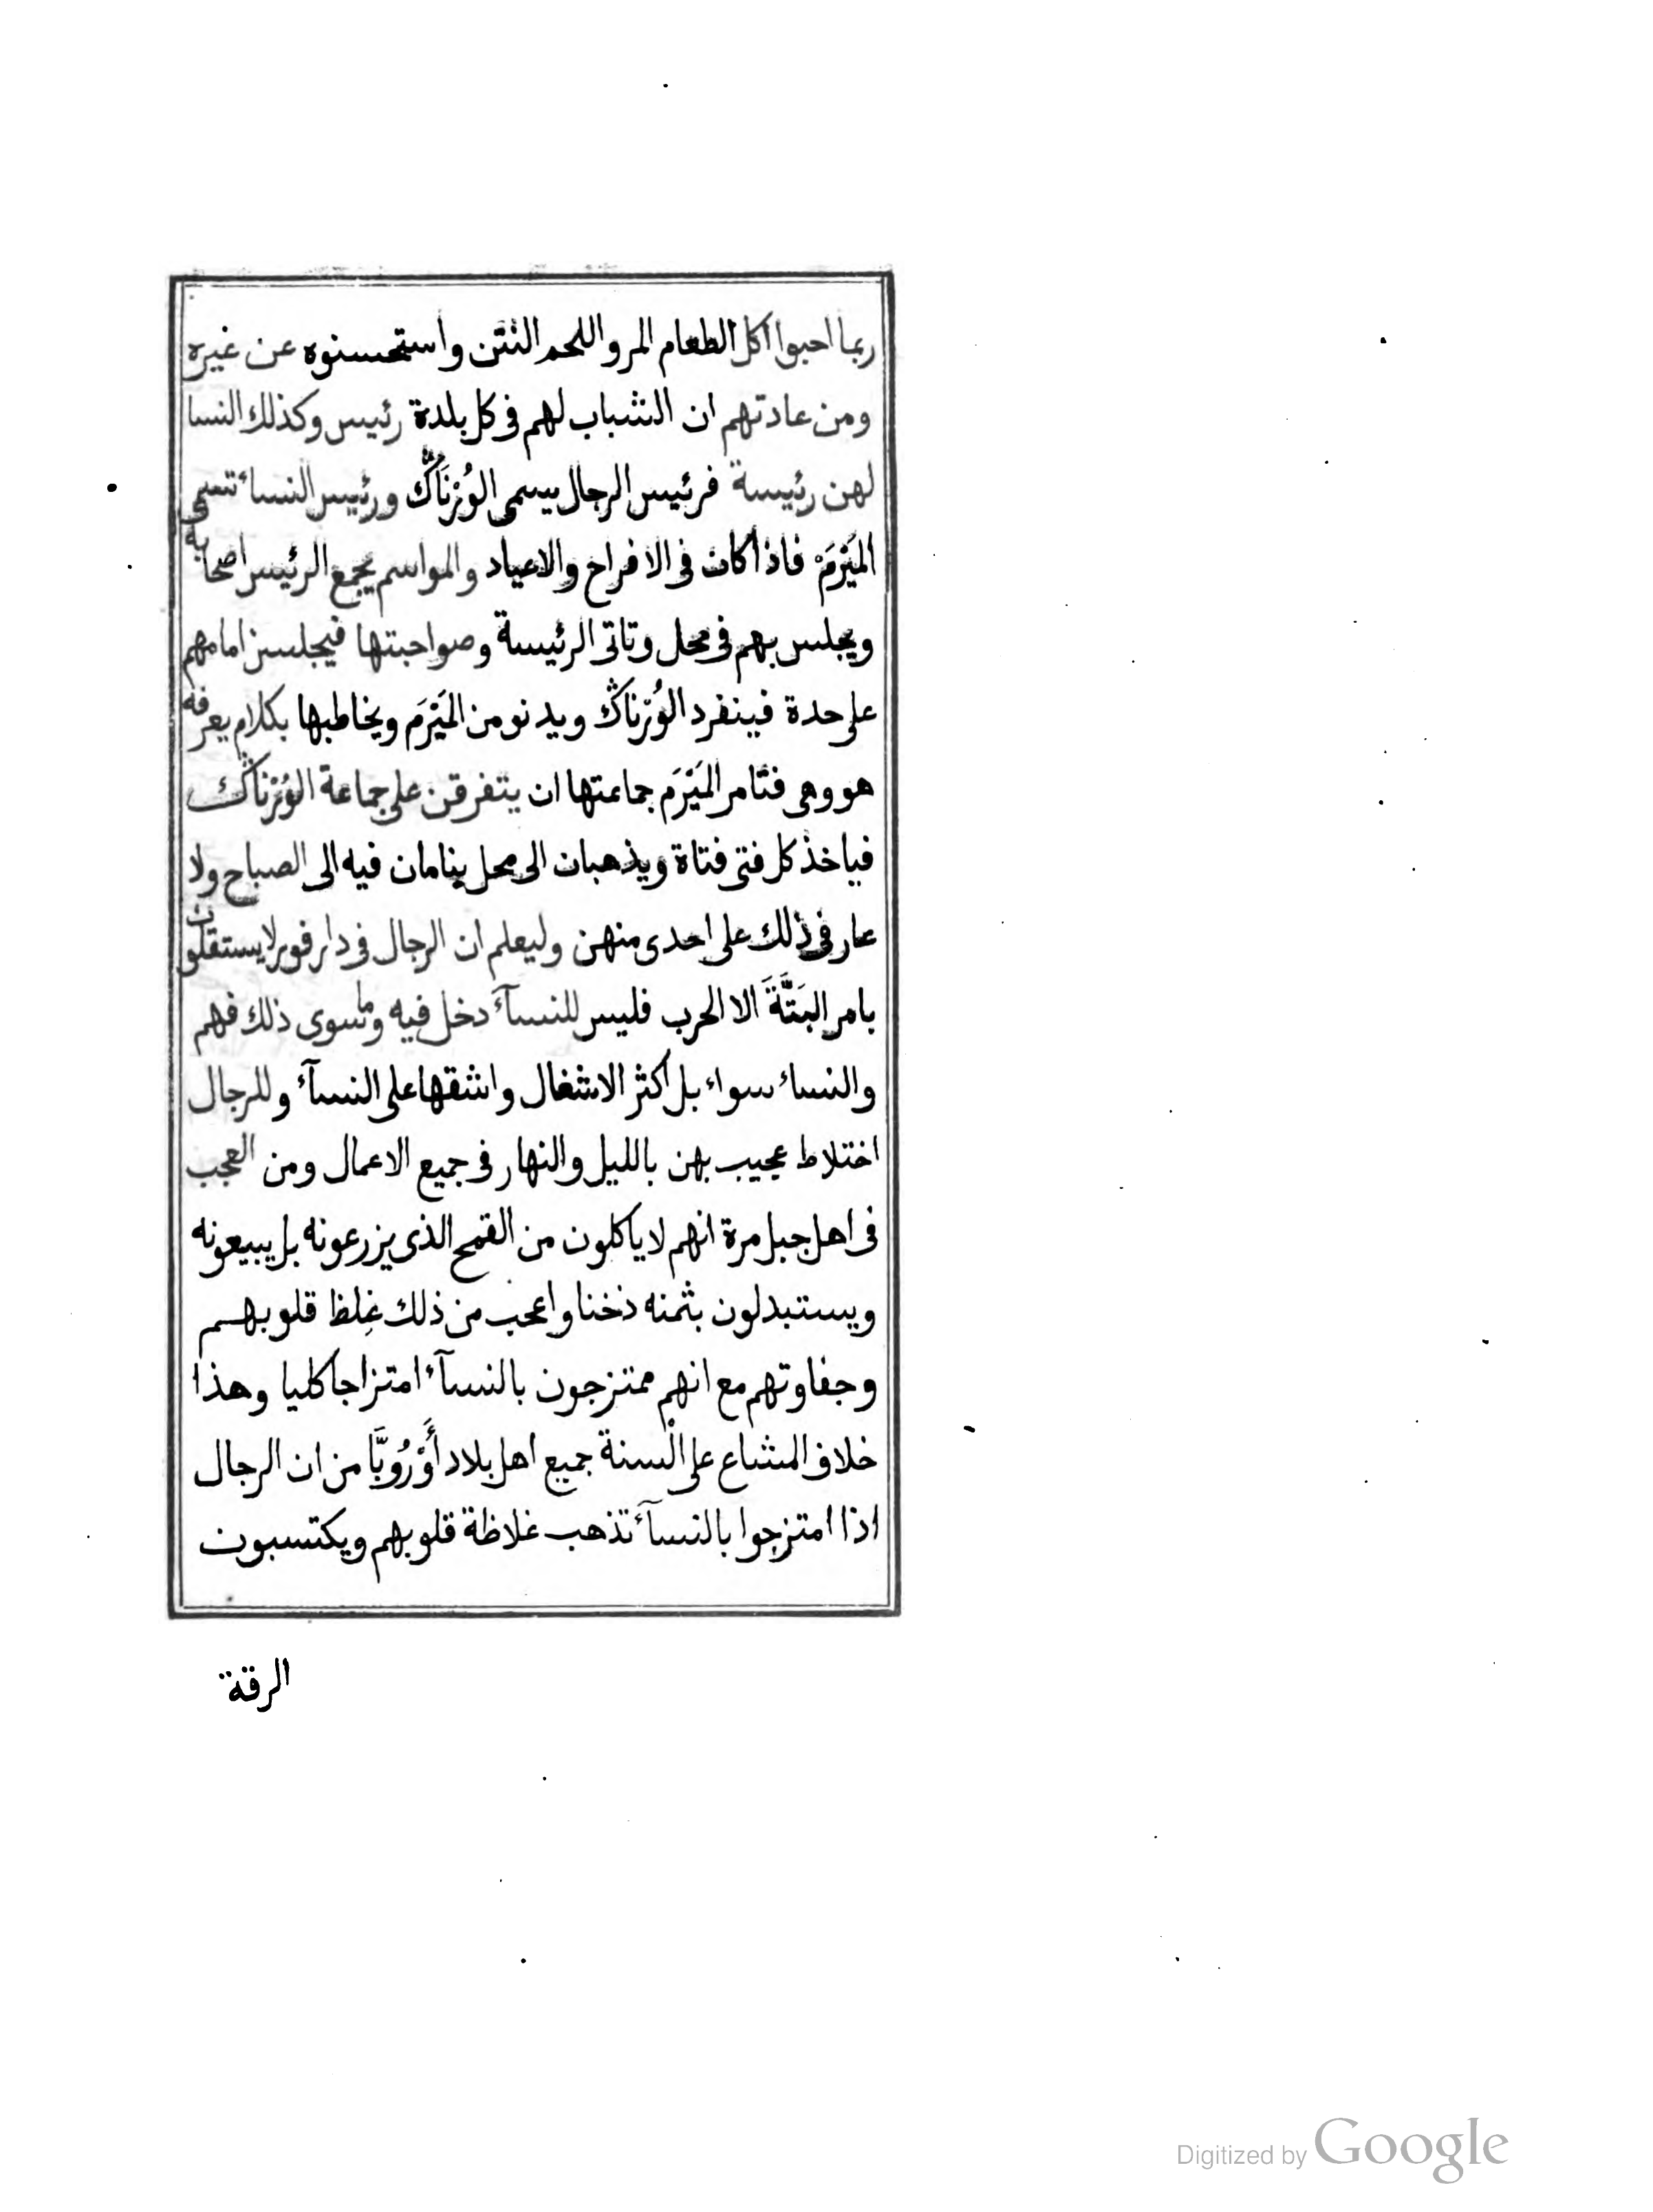 ربما احبوا اكل الطعام المر واللحم النتن واستحسنوه عن غيره
ومن عادتهم ان الشباب لهم فى كل بلدة رئيس وكذلك النسا
لهن رئيسة فرئيس الرجال يسمى الوُرْنَانْكْ ورئيس النساء تسمى
المَيْرَمْ فاذا كان فى الافراح والاعياد والمواسم يجمع الرئيس اصحابه
ويجلس بهم فى محل وتاتى الرئيسة وصواحبتها فيجلسن امامهم
على حدة فينفرد الوُرْنانْك ويدنو من المَيْرَم ويخاطبها بكلام يعرفه
هو وهى فتامر المَيْرَم جماعتها ان يتفرقن على جماعة الوُرْنانْك
فياخذ كل فتى فتاة ويذهبان الى محل ينامان فيه الى الصباح ولا
عار فى ذلك على احدى منهن وليعلم ان الرجال فى دار فور لا يستقلون
بامر البَتَّةَ الا الحرب فليس للنسآء دخل فيه وما سوى ذلك فهم
والنساء سواء بل اكثر الاشغال واشقها على النسآء وللرجال
اختلاط عجيب بهن بالليل والنهار فى جميع الاعمال ومن العجب
فى اهل جبل مرة انهم لا ياكلون من القمح الذى يزرعونه بل يبيعونه
ويستبدلون بثمنه دخنا واعجب من ذلك غِلظ قلوبهم
وجفاوتهم مع انهم ممتزجون بالنسآء امتزاجا كليا وهذا
خلاف المشاع على السنة جميع اهل بلاد أَوْرُوبَّا من ان الرجال
اذا امتزجوا بالنسآء تذهب غلاظة قلوبهم ويكتسبون
الرقة
Digitized by Google